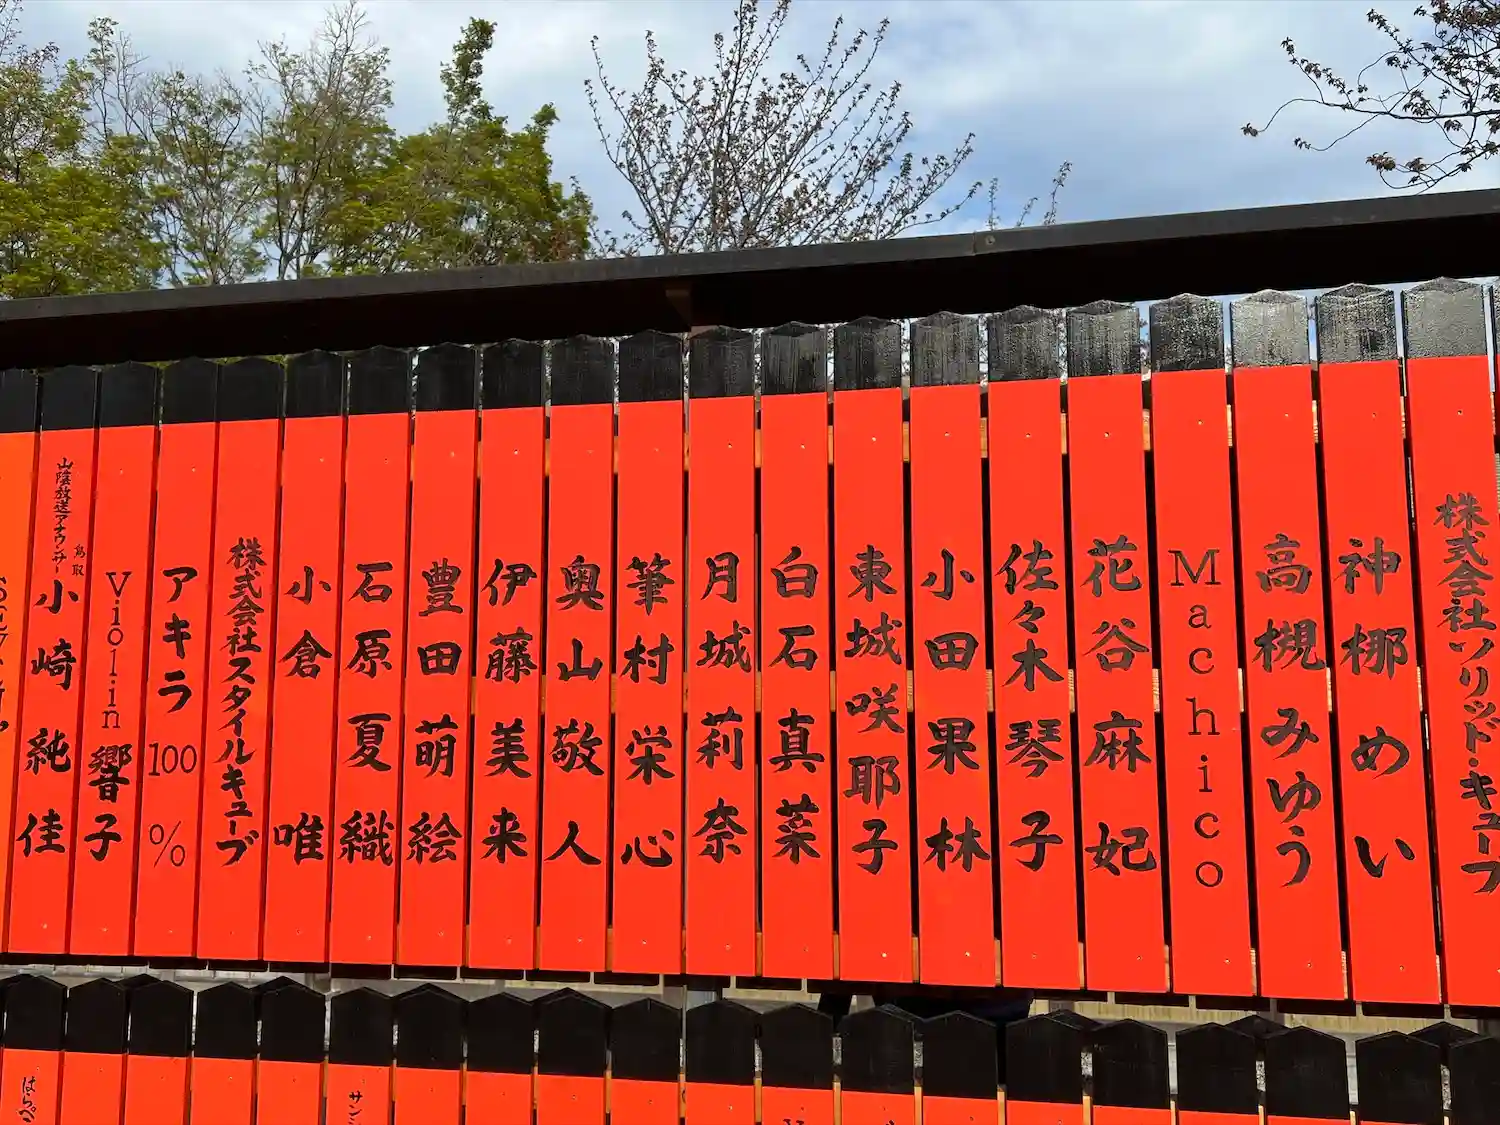 株式会社ソリッド・キューブ
神梛めい
高槻みゆう
Machico
花谷麻妃
佐々木琴子
小田果林
東城咲耶子
白石真菜
月城莉奈
筆村栄心
奥山敬人
伊藤美来
豊田萌絵
石原夏織
小倉唯
株式会社スタイルキューブ
アキラ100%
Violin響子
山陰放送アナウンサー
鳥取
小崎純佳
サン
はらぺこ